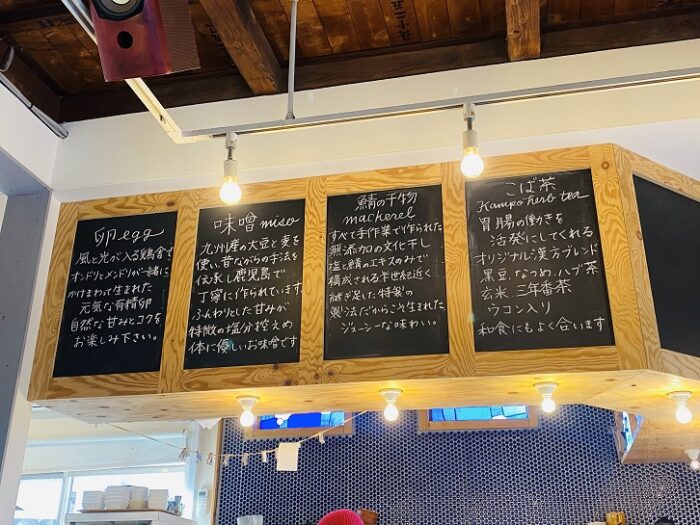 卵 egg
風と光が入る鶏舎で
オンドリとメンドリが一緒に
かけまわって生まれた
元気な有精卵
自然な甘みとコクを
お楽しみ下さい。
味噌 miso
九州産の大豆と麦を
使い、昔ながらの手法を
伝承し鹿児島で
丁寧に作られています。
ふんわりとした甘みが
特徴の塩分控えめ
体に優しいお味噌です
鯖の干物
macherel
すべて手作業で作られた
無添加の文化干し
塩と鯖のエキスのみで
構成される半世紀近く
継ぎ足した特製の
製法だからこそ生まれた
ジューシーな味わい。
こば茶
Kampo herb tea
胃腸の働きを
活発にしてくれる
オリジナル漢方ブレンド
黒豆、なつめ、ハブ茶
玄米 三年番茶
ウコン入り
和食にもよく合います